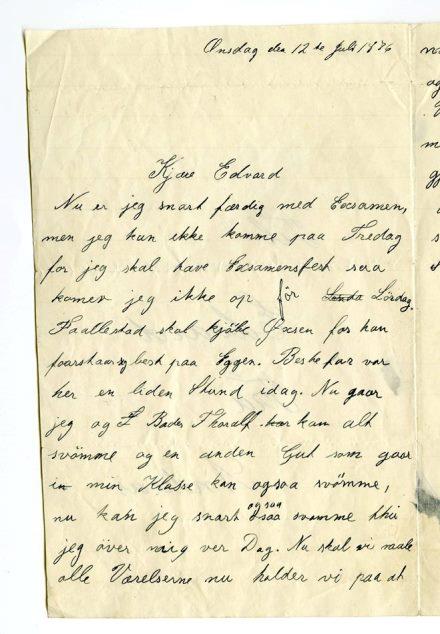 Onsdag den 12te Juli 1876
Kjære Edvard
Nu er jeg snart færdig med Eexsamen,
men jeg kan ikke komme paa Fredag
for jeg skal have Eexsamensfest saa
komer jeg ikke op før Lørdag.
skal kjøbe Oxsen for han
best paa Eggen. Bestefar var
her en liden Stund idag. Nu gaar
jeg og I Bader Thoralf kan alt
svømme og en anden Gut som gaar
in min Klasse kan ogsaa svømme,
nu kan jeg snart ogsaa svømme thi
jeg över mig ver Dag. Nu skal vi maale
alle Værelserne nu holder vi paa at